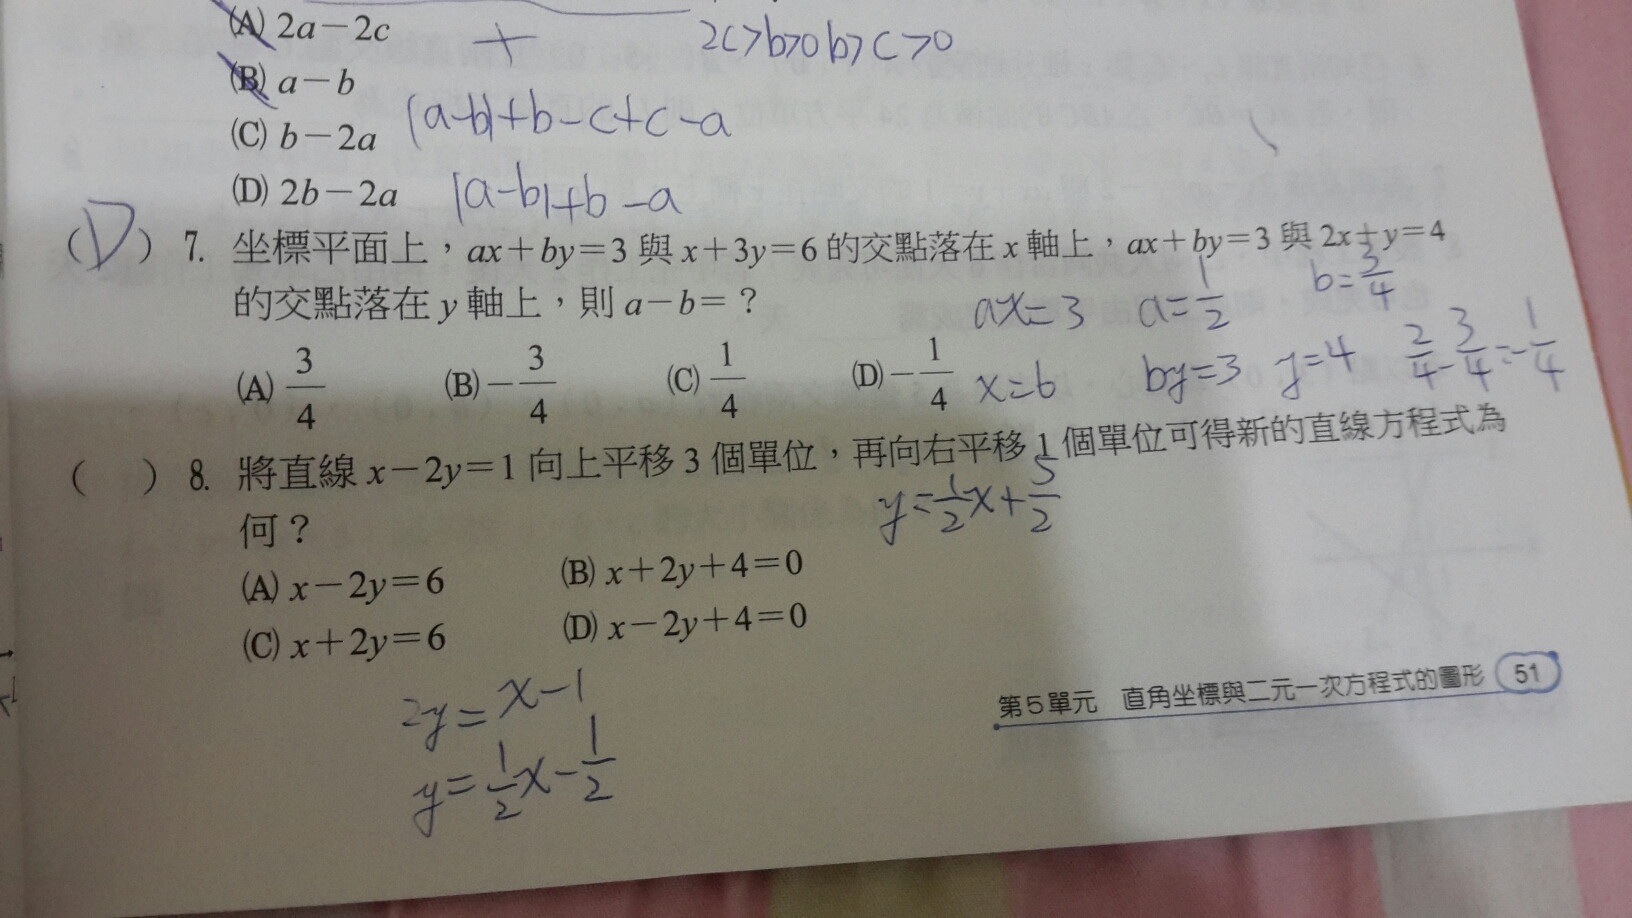 (A) 2a－2c
＋ 2c>b>0 b>c>0
(B) a－b
(C) b－2a |a-b|+b-c+c-a
(D) 2b－2a |a-b|+b-a
(D) 7. 坐標平面上，ax＋by＝3 與 x＋3y＝6 的交點落在 x 軸上，ax＋by＝3 與 2x＋y＝4
的交點落在 y 軸上，則 a－b＝？
ax=3 a=1/2 b=3/4
x=6 by=3 y=4 2/4-3/4=-1/4
(A) 3/4 (B)－3/4 (C) 1/4 (D)－1/4
( ) 8. 將直線 x－2y＝1 向上平移 3 個單位，再向右平移 1 個單位可得新的直線方程式為
何？
y=1/2x+5/2
(A) x－2y＝6 (B) x＋2y＋4＝0
(C) x＋2y＝6 (D) x－2y＋4＝0
2y=x-1
y=1/2x-1/2
第5單元 直角坐標與二元一次方程式的圖形 51